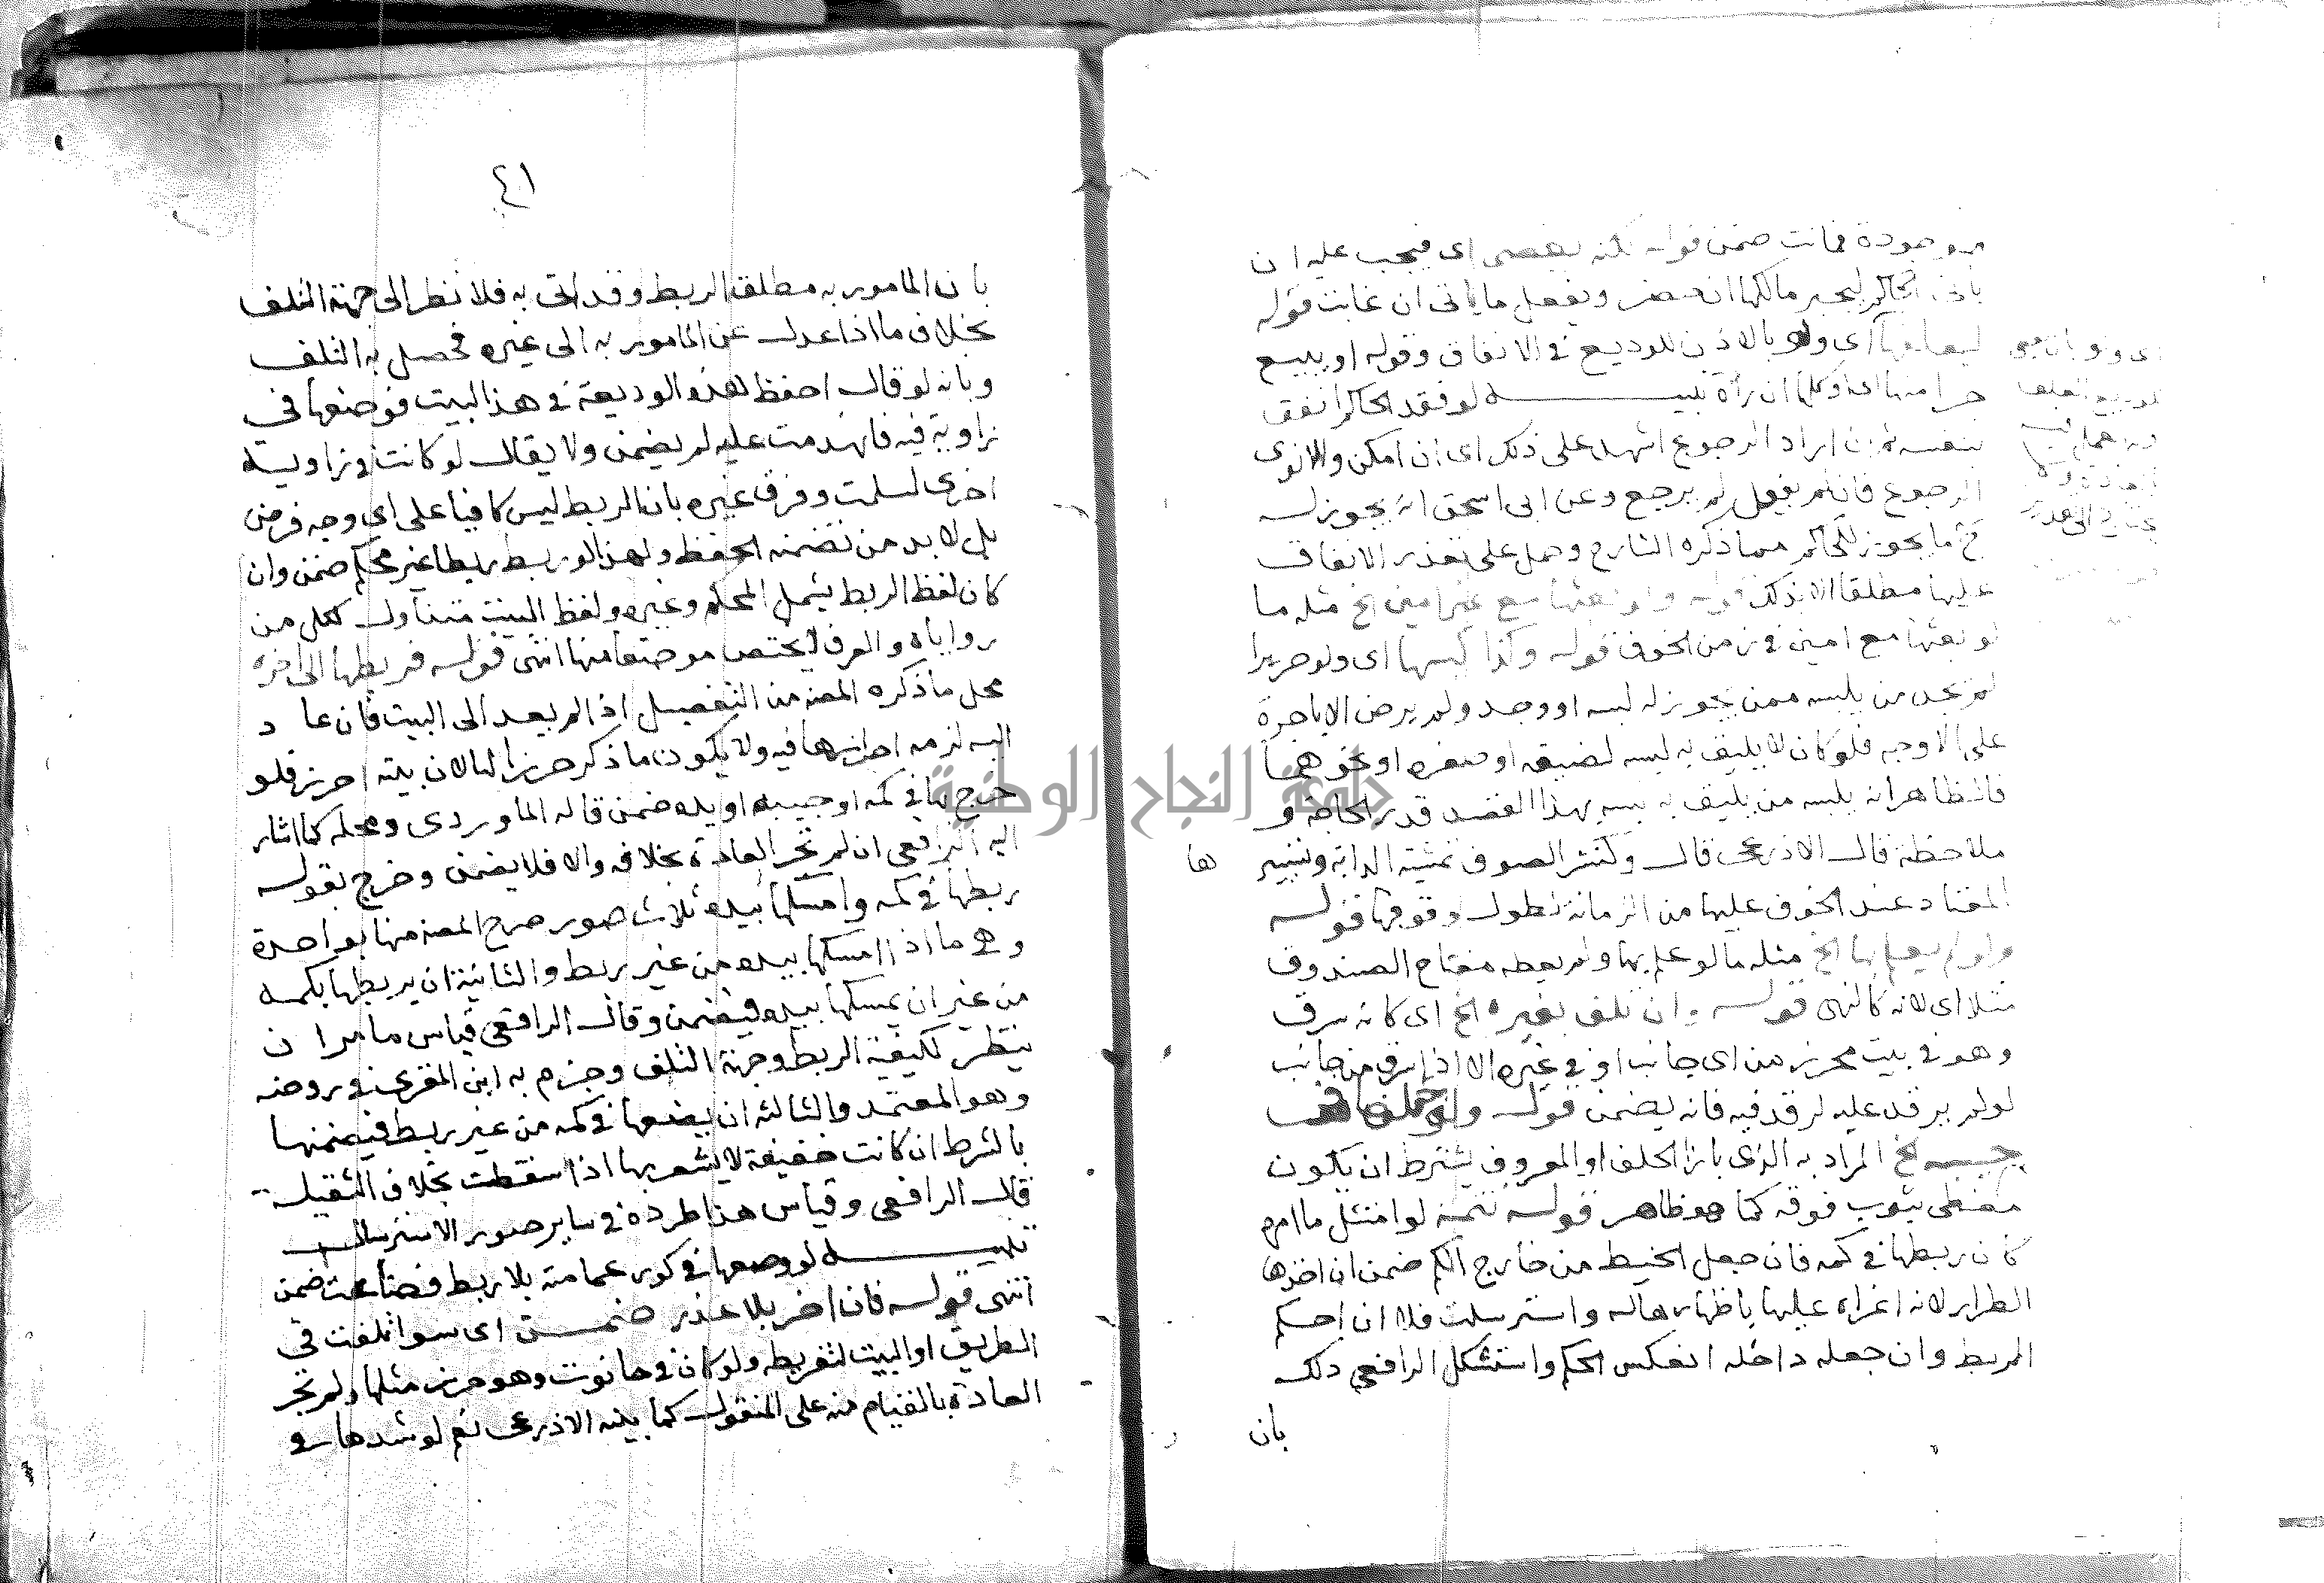 موجودة فماتت ضمن قوله لكنه يعصى اى فيجب عليه ان
ياتى الحاكم ليجبر مالكها ان حضر ويفعل ما ياتى ان غابت قوله
ليعلفها اى ولو بالاذن للوديع فى الانفاق وقوله او يبيع
جزا منها اى او كلها ان رآه تنبيه لو فقد الحاكم انفق
بنفسه ثم ان اراد الرجوع اشهد على ذلك اى ان امكن والا نوى
الرجوع فان لم يفعل لم يرجع وعن ابى اسحق انه يجوز له
ح ما يجوز للحاكم مما ذكره الشارح وحمل على تعذر الانفاق
عليها مطلقا الا بذلك قوله ولو بعثها مع غير امين الخ مثله ما
لو بعثها مع امين فى زمن الخوف قوله وكذا لبسها اى ولو حريرا
لم يجد من يلبسه ممن يجوز له لبسه او وجد ولم يرض الا باجرة
على الاوجه فلو كان لا يليق به لبسه لضيقه او صغره او نحوهما
فالظاهر انه يلبسه من يليق به لبسه بهذا القصد قدر الحاجة و
ملاحظه قال الاذرعى قال وكنشر الصوف تمشية الدابة وتسيير
ها
المعتاد عند الخوف عليها من الزمانة لطول وقوفها قوله
ولو لم يعلم بها الخ مثله ما لو علم بها ولم يعطه مفتاح الصندوق
مثلا اى لانه كالنهى قوله وان تلف بغيره الخ اى كانه سرق
وهو فى بيت محرز من اى جانب او فى غيره الا اذا سرق من جانب
لو لم يرقد عليه لرقد فيه فانه يضمن قوله ولو جعلها فى
جيبه الخ المراد به الذى بازا الحلق او المعروف يشترط ان يكون
مغطى بثوب فوقه كما هو ظاهر قوله تتمة لو امتثل ما امره
كان ربطها فى كمه فان جعل الخيط من خارج الكم ضمن ان اخذها
الطرار لانه اغراه عليها باظهارها له واسترسلت فلا ان احكم
الربط وان جعله داخله انعكس الحكم واستشكل الرافعى ذلك
بان
٤١
بان المامور به مطلق الربط وقد اتى به فلا نظر الى جهة التلف
بخلاف ما اذا عدل عن المامور به الى غيره فحصل به التلف
وبانه لو قال احفظ هذه الوديعة فى هذا البيت فوضعها في
زاوية فيه فانهدمت عليه لم يضمن ولا يقال لو كانت فى زاويـه
اخرى لسلمت وفرق غيره بان الربط ليس كافيا على اى وجه فرض
بل لا بد من تضمنه الحفظ ولهذا لو ربط ربطا غير محكم ضمن وان
كان لفظ الربط يشمل المحكم وغيره ولفظ البيت متناول لكل من
زواياه والعرف لا يختص موضعا منها انتهى قوله فربطها الى اخره
محل ما ذكره المصنف من التفصيل اذا لم يعد الى البيت فان عا د
اليه لزمه احرازها فيه ولا يكون ما ذكر حرزا لها لان بيته احرز فلو
خرج بها فى كمه او جيبه او يده ضمن قاله الماوردى ومحله كما اشار
اليه الرافعى ان لم تجر العادة بخلافه والا فلا يضمن وخرج بقوله
ربطها فى كمه وامسكها بيده ثلاث صور صرح المصنف منها بواحدة
وهى ما اذا امسكها بيده من غير ربط والثانية ان يربطها بكمه
من غير ان يمسكها بيده فيضمن وقال الرافعى قياس ما مر ا ن
ينظر لكيفية الربط وجهة التلف وجزم به ابن المقرى فى روضه
وهو المعتمد والثالثة ان يضعها فى كمه من غير ربط فيضمنها
بالشرط ان كانت خفيفة لا يشعر بها اذا سقطت بخلاف الثقيلـة
قال الرافعى وقياس هذا طرده فى ساير صور الاسترسال
تنبيه لو وضعها فى كور عمامته بلا ربط فضاعت ضمن
انتهى قوله فان اخر بلا عذر ضمن اى سوا تلفت في
الطريق او البيت لتفريطه ولو كان فى حانوت وهو حرز مثلها ولم تجر
العادة بالقيام منه على المنقول كما بينه الاذرعى نعم لو شدها فى
جامعة النجاح الوطنية